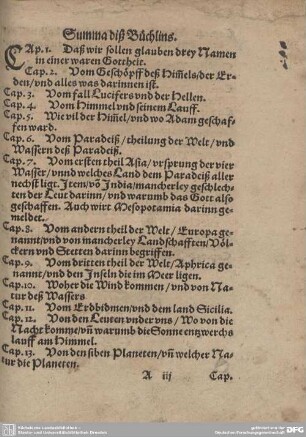 Summa diß Büchlins.
CAp. 1. Daß wir sollen glauben drey Namen
in einer waren Gottheit.
Cap. 2. Vom Geschöpff deß Him̃els/der Er-
den/vnd alles was darinnen ist.
Cap. 3. Vom fall Lucifers vnd der Hellen.
Cap. 4. Vom Himmel vnd seinem Lauff.
Cap. 5. Wie vil der Him̃el/vnd wo Adam geschaf-
fen ward.
Cap. 6. Vom Paradeiß/theilung der Welt/vnd
Wassern deß Paradeiß.
Cap. 7. Vom ersten theil Asia/vrsprung der vier
Wasser/vnnd welches Land dem Paradeiß aller
nechst ligt. Item/võ India/mancherley geschlech-
ten der Leut darinn/vnd warumb das Gott also
geschaffen. Auch wirt Mesopotamia darinn ge-
meldet.
Cap. 8. Vom andern theil der Welt/Europa ge-
nannt/vnd von mancherley Landschafften/Völ-
ckern vnd Stetten darinn begriffen.
Cap. 9. Vom dritten theil der Welt/Aphrica ge-
nannt/vnd den Inseln die im Meer ligen.
Cap. 10. Woher die Wind kommen/vnd von Na-
tur deß Wassers
Cap. 11. Vom Erdbidmen/vnd dem land Sicilia.
Cap. 12. Von den Leuten vnder vns/Wo von die
Nacht komme/vñ warumb die Sonne entzwerchs
lauff am Himmel.
Cap. 13. Von den siben Planeten/vñ welcher Na-
tur die Planeten.
A iij Cap.